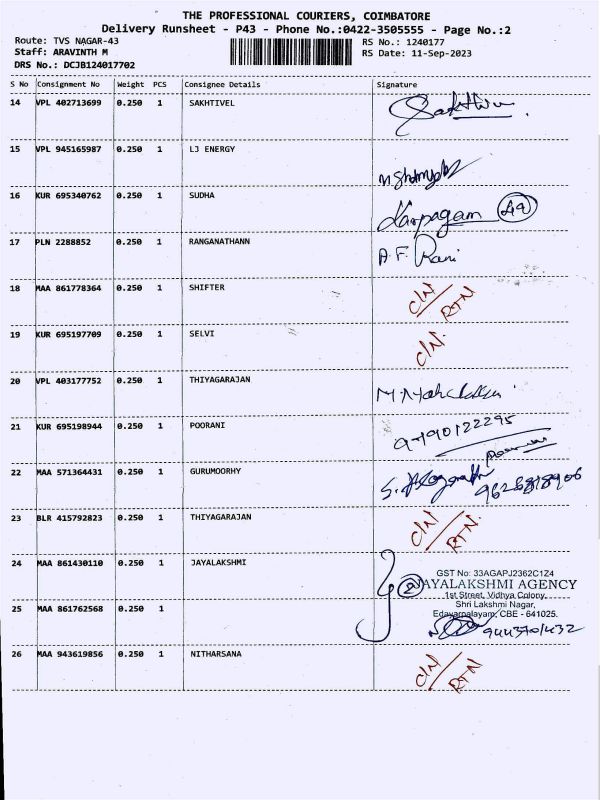 THE PROFESSIONAL COURIERS, COIMBATORE
Delivery Runsheet - P43 - Phone No.:0422-3505555 - Page No.:2
Route: TVS NAGAR-43 RS No.: 1240177
Staff: ARAVINTH M RS Date: 11-Sep-2023
DRS No.: DCJB124017702
S No Consignment No Weight PCS Consignee Details Signature
14 VPL 402713699 0.250 1 SAKHTIVEL Sakthive
15 VPL 945165987 0.250 1 LJ ENERGY
16 KUR 695340762 0.250 1 SUDHA Karpagam
17 PLN 2288852 0.250 1 RANGANATHANN A.F. Rani
18 MAA 861778364 0.250 1 SHIFTER C/N/ RTN
19 KUR 695197709 0.250 1 SELVI C/N.
20 VPL 403177752 0.250 1 THIYAGARAJAN
21 KUR 695198944 0.250 1 POORANI
22 MAA 571364431 0.250 1 GURUMOORHY
23 BLR 415792823 0.250 1 THIYAGARAJAN C/N/ RTN.
24 MAA 861430110 0.250 1 JAYALAKSHMI
GST No: 33AGAPJ2362C1Z4
JAYALAKSHMI AGENCY
1st Street, Vidhya Colony,
Shri Lakshmi Nagar,
25 MAA 861762568 0.250 1 Edayarpalayam, CBE - 641025.
9443701432
26 MAA 943619856 0.250 1 NITHARSANA C/N/ RTN